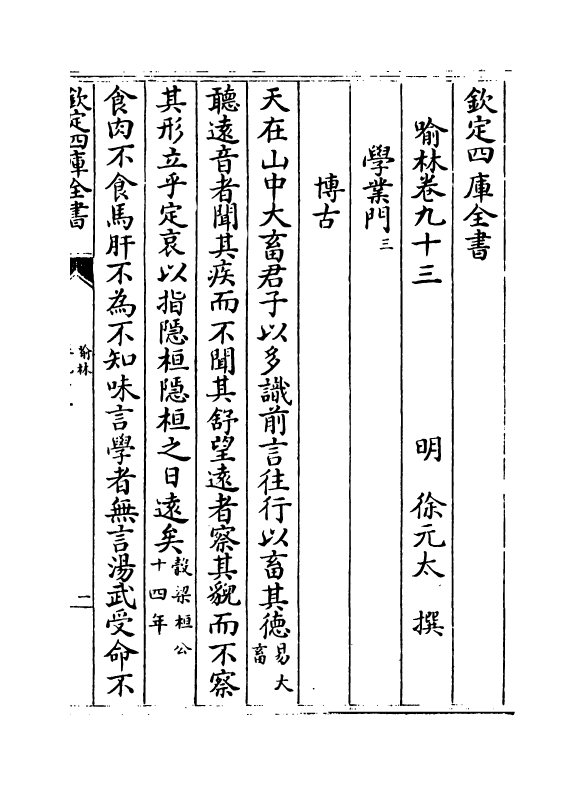 欽定四庫全書
喻林卷九十三　明　徐元太　撰
學業門三
博古
天在山中大畜君子以多識前言往行以畜其德易大畜
聽遠音者聞其疾而不聞其舒望遠者察其貌而不察
其形立乎定哀以指隱桓隱桓之日遠矣穀梁桓公十四年
食肉不食馬肝不為不知味言學者無言湯武受命不
欽定四庫全書
喻林
一